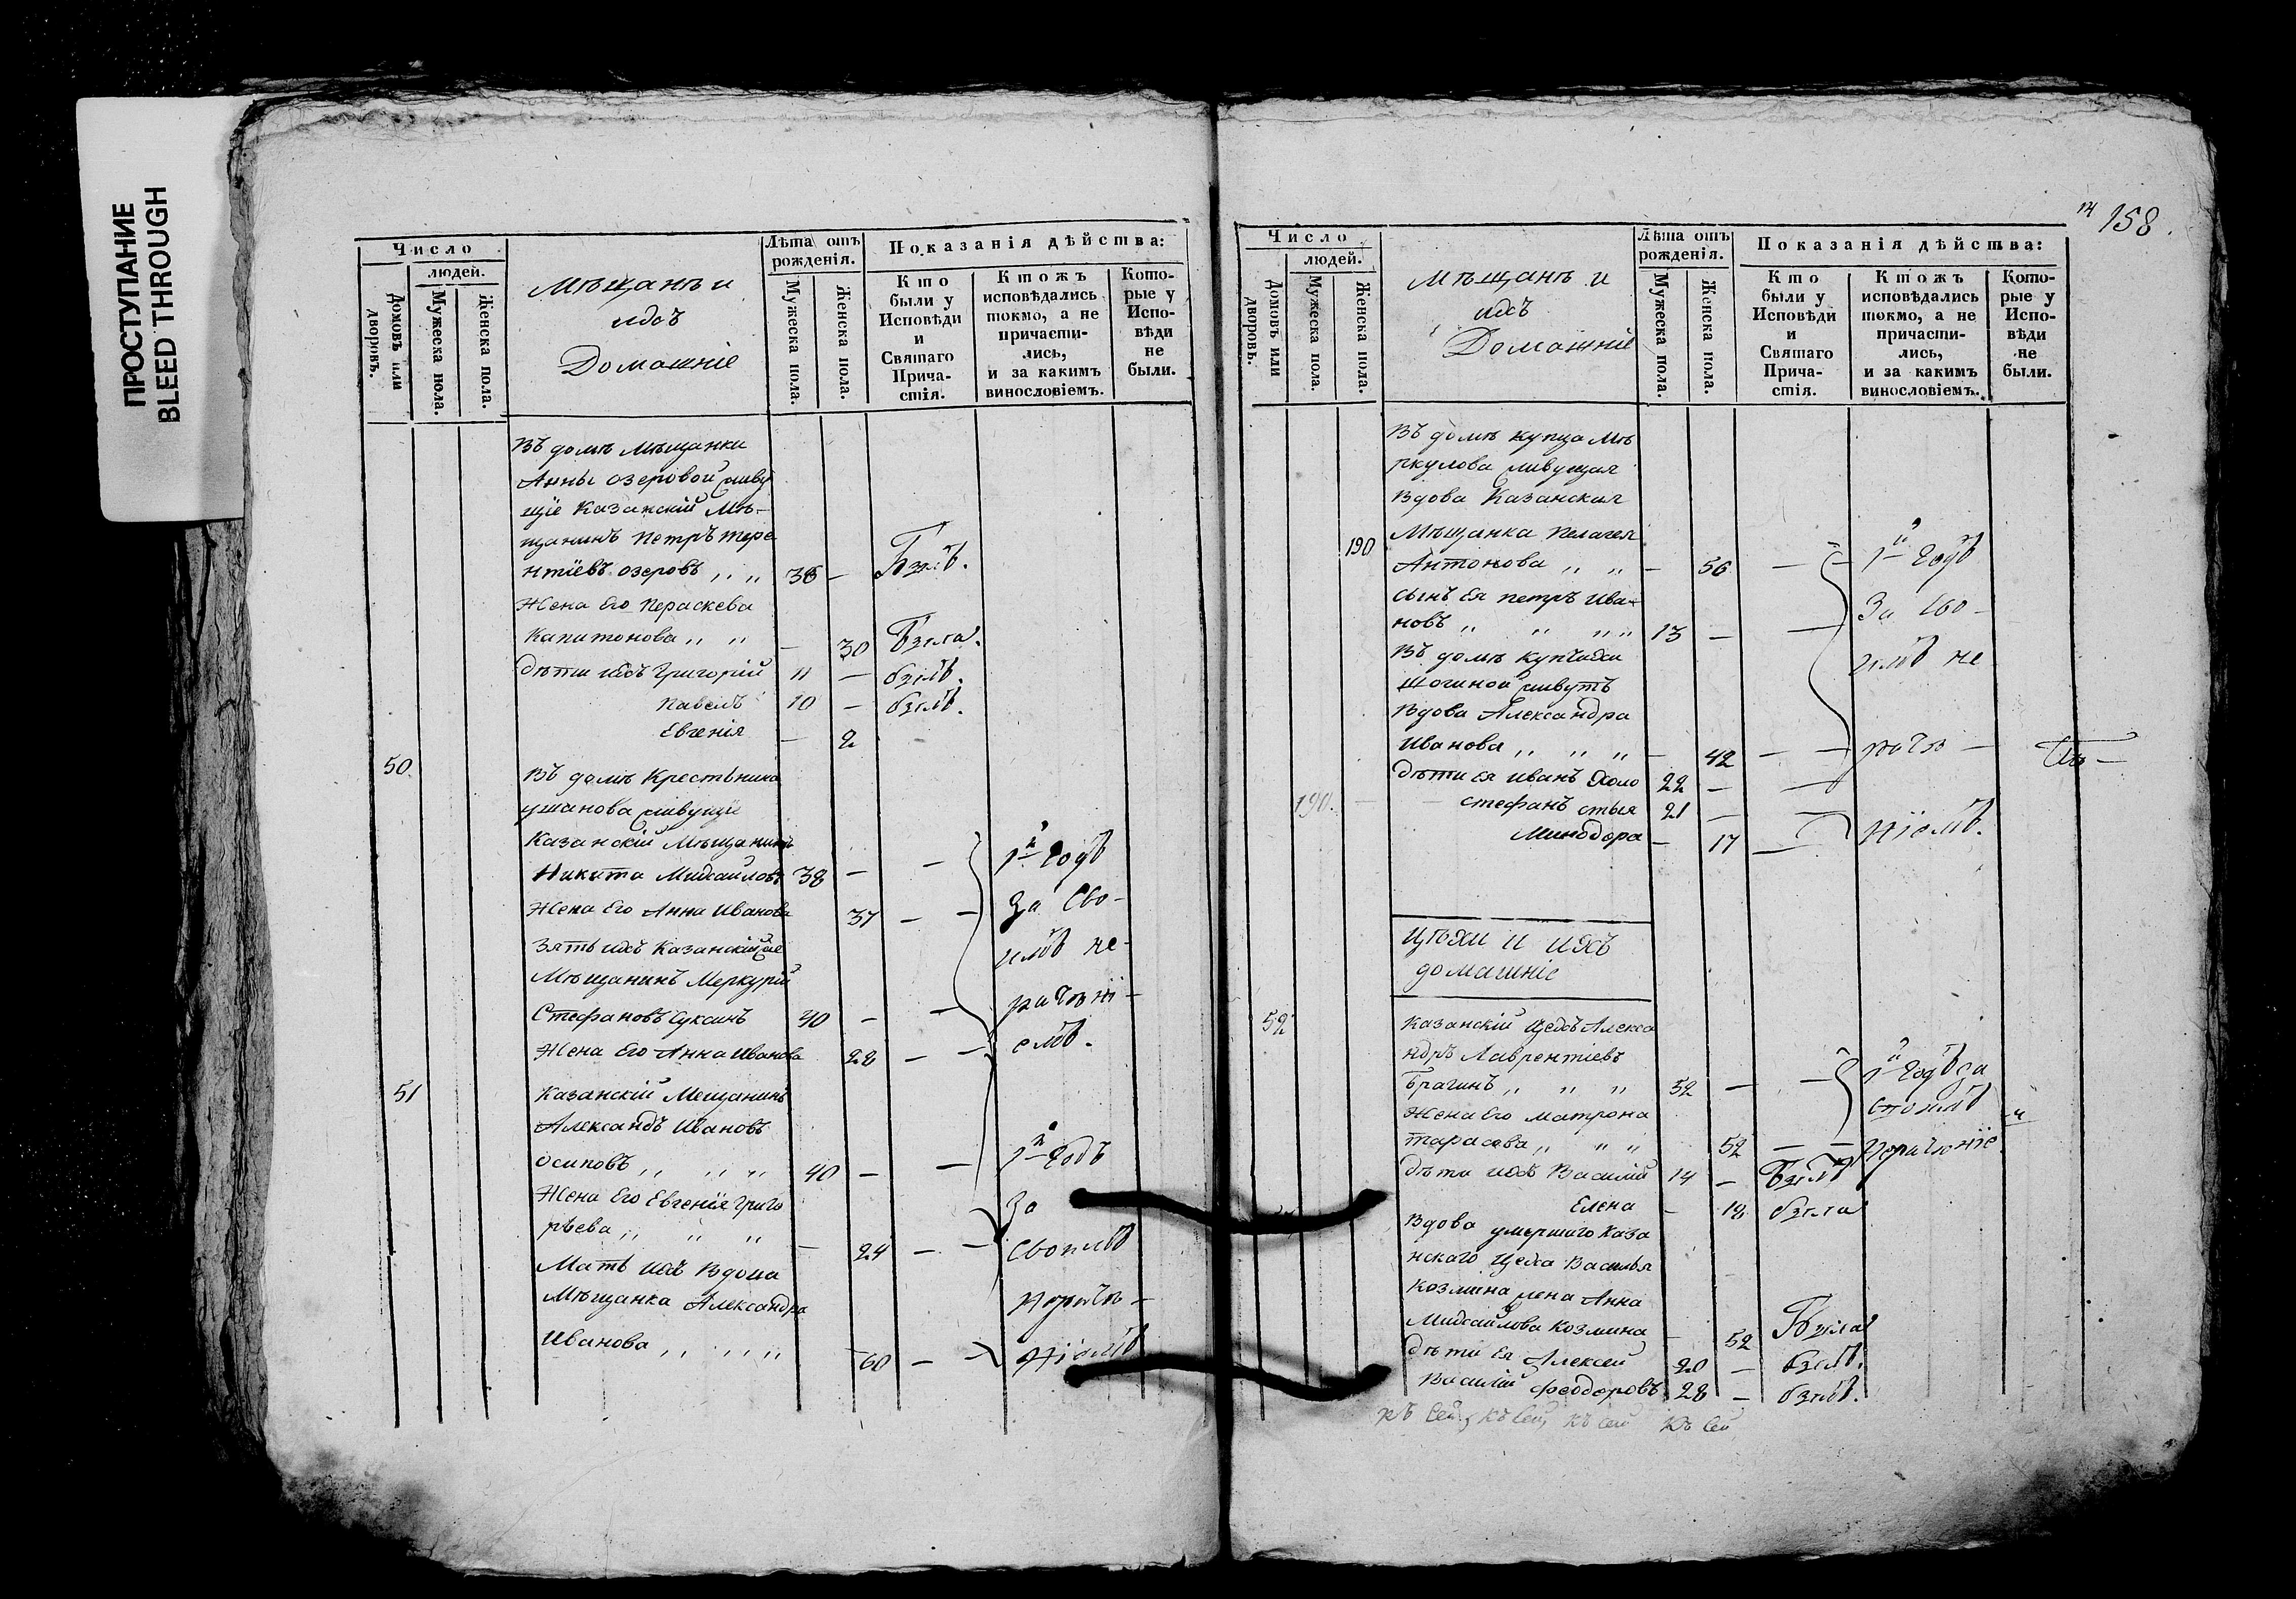 ПРОСТУПАНИЕ
BLEED THROUGH
Число
людей.
Домовъ или дворовъ.
Мужеска пола.
Женска пола.
Мѣщанъ и
ихъ
Домашніе
Лѣта отъ рожденія.
Мужеска пола.
Женска пола.
Показанія дѣйства:
Кто были у Исповѣди и Святаго Прича-стія.
Ктожъ исповѣдались токмо, а не причасти-лись, и за какимъ винословіемъ.
Кото-рые у Испо-вѣди не были.
Въ домѣ Мѣщанки
Анны Озеровой живу
щіе Казанскій Мѣ-
щанинъ Петръ Тере
нтіевъ Озеровъ ,, ,, 36 —
Жена Его Параскева
Капитонова ,, ,, — 30
Дѣти ихъ Григорій 11 —
Павелъ 10 —
Евгенія — 2
50 Въ домѣ Крестьнина
ушанова живущи
Казанскій Мѣщанинъ
Никита Михайловъ 38 — — 1й годъ
Жена Его Анна Иванова 37 — — За Сво-
Зять ихъ Казанскій же
имъ не-
Мѣщанинъ Меркурій
Стефановъ Суксинъ 40 — —
Жена Его Анна Иванова 22 — —
51 Казанскій Мещанинъ
Александъ Ивановъ
Осиповъ ,, ,, ,, 40 — — 1й годъ
Жена Его Евгенія Григо
За
рьева ,, ,, ,, — 24 — —
Мать ихъ Вдова
Мѣщанка Александра
Иванова ,, ,, ,, 60 — —
14 158.
Число
людей.
Домовъ или дворовъ.
Мужеска пола.
Женска пола.
Мѣщанъ и
ихъ
Домашніе
Лѣта отъ рожденія.
Мужеска пола.
Женска пола.
Показанія дѣйства:
Кто были у Исповѣди и Святаго Прича-стія.
Ктожъ исповѣдались токмо, а не причасти-лись, и за какимъ винословіемъ.
Кото-рые у Испо-вѣди не были.
Въ домѣ купца Мѣ
ркулова живущая
Вдова Казанская
190 Мѣщанка Пелагея
Антонова ,, ,, — 56 — — 1й годъ
Сынъ Ея Петръ Ива-
За Сво-
новъ ,, ,, ,, 13 — —
Въ домѣ Купчихи
имъ не
живутъ
Вдова Александра
Иванова ,, ,, ,, — 42 — —
Дѣти ея Иванъ Холо 22 — —
190. Стефанъ стыя 21 — —
Минодора — 17 —
Цѣхи и ихъ
домашніе
52 Казанскій Цехъ Алекса
ндръ Лаврентіевъ
Брагинъ ,, ,, ,, 52 — — 1й годъ за
Жена Его Матрона
Тарасова ,, ,, ,, 52 — —
Дѣти ихъ Василій 14 —
Елена — 12
Вдова умершаго Каза
нскаго Цеха Василья
Козмина жена Анна
Михайлова Козмина — 52
Дѣти Ея Алексей 20 —
Василій Феодоровъ 28 —
Къ Сей, Къ Сей, Къ Сей Къ Сей